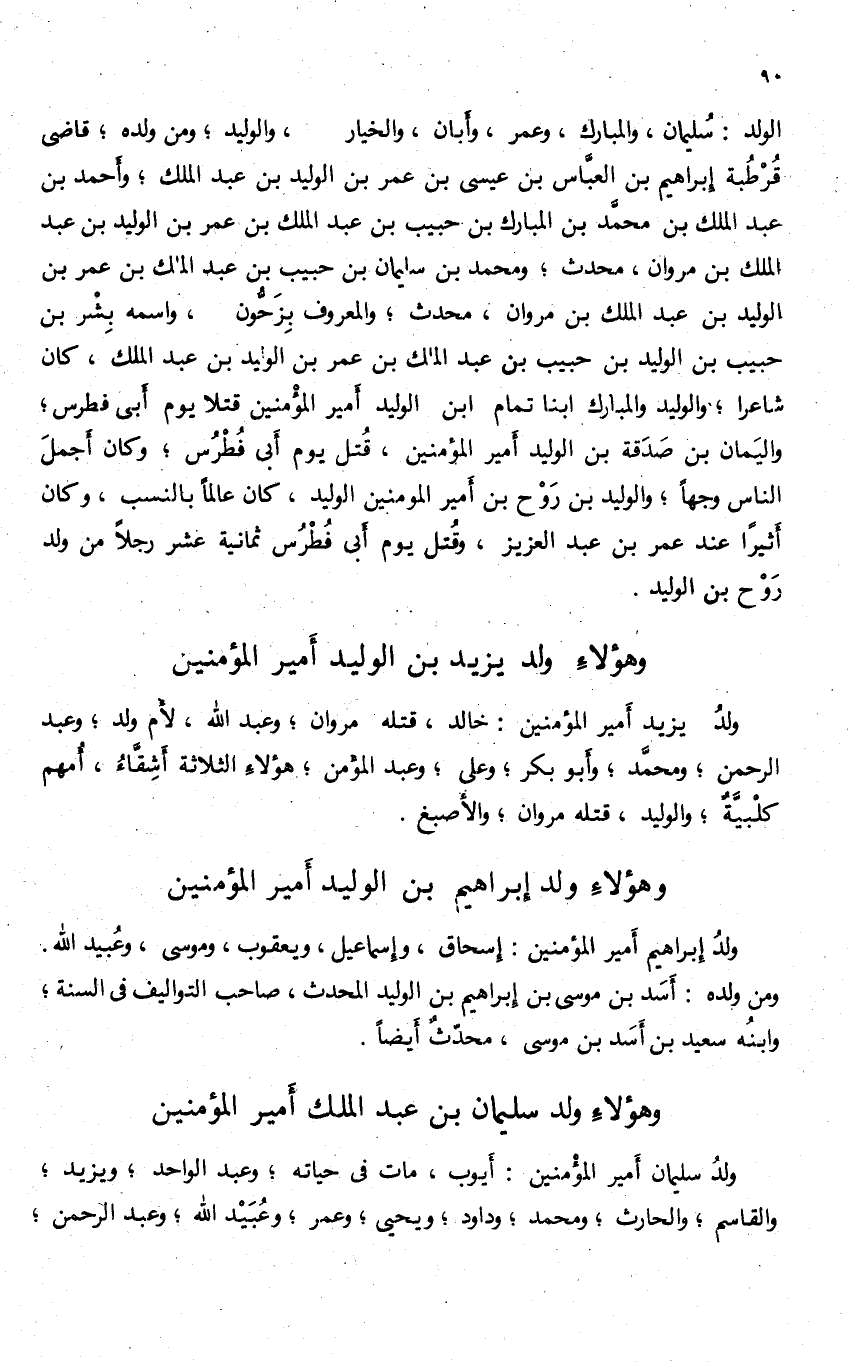 ٩٠
الولد : سُليمان ، والمبارك ، وعمر ، وأَبان ، والخيار ، والوليد ؛ ومن ولده ؛ قاضى
قُرْطُبة إبراهيم بن العبَّاس بن عيسى بن عمر بن الوليد بن عبد الملك ؛ وأَحمد بن
عبد الملك بن محمَّد بن المبارك بن حبيب بن عبد الملك بن عمر بن الوليد بن عبد
الملك بن مروان ، محدث ؛ ومحمد بن سليمان بن حبيب بن عبد الملك بن عمر بن
الوليد بن عبد الملك بن مروان ، محدث ؛ والمعروف بِزَحُّون ، واسمه بِشْر بن
حبيب بن الوليد بن حبيب بن عبد الملك بن عمر بن الوليد بن عبد الملك ، كان
شاعرا ؛ والوليد والمبارك ابنا تمام ابن الوليد أَمير المؤْمنين قتلا يوم أَبى فطرس ؛
واليَمان بن صَدَقة بن الوليد أَمير المؤمنين ، قُتل يوم أَبى فُطْرُس ؛ وكان أَجملَ
الناس وجهاً ؛ والوليد بن رَوْح بن أَمير المومنين الوليد ، كان عالماً بالنسب ، وكان
أَثيرًا عند عمر بن عبد العزيز ، وقُتل يوم أَبى فُطْرُس ثمانية عشر رجلاً من ولد
رَوْح بن الوليد .
وهؤلاءِ ولد يزيد بن الوليد أَمير المؤمنين
ولدُ يزيد أَمير المؤمنين : خالد ، قتله مروان ؛ وعبد الله ، لأُم ولد ؛ وعبد
الرحمن ؛ ومحمَّد ؛ وأَبو بكر ؛ وعلى ؛ وعبد المؤمن ؛ هؤلاءِ الثلاثة أَشِقَّاءُ ، أُمهم
كلْبيَّةٌ ؛ والوليد ، قتله مروان ؛ والأَصبغ .
وهؤلاءِ ولد إبراهيم بن الوليد أَمير المؤمنين
ولدُ إبراهيم أَمير المؤمنين : إسحاق ، وإسماعيل ، ويعقوب ، وموسى ، وعُبيد الله .
ومن ولده : أَسَد بن موسى بن إبراهيم بن الوليد المحدث ، صاحب التواليف فى السنة ؛
وابنُه سعيد بن أَسَد بن موسى ، محدّثٌ أَيضاً .
وهؤلاءِ ولد سليمان بن عبد الملك أَمير المؤمنين
ولدُ سليمان أَمير المؤْمنين : أَيوب ، مات فى حياته ؛ وعبد الواحد ؛ ويزيد ؛
والقاسم ؛ والحارث ؛ ومحمد ؛ وداود ؛ ويحيى ؛ وعمر ؛ وعُبَيْد الله ؛ وعبد الرحمن ؛